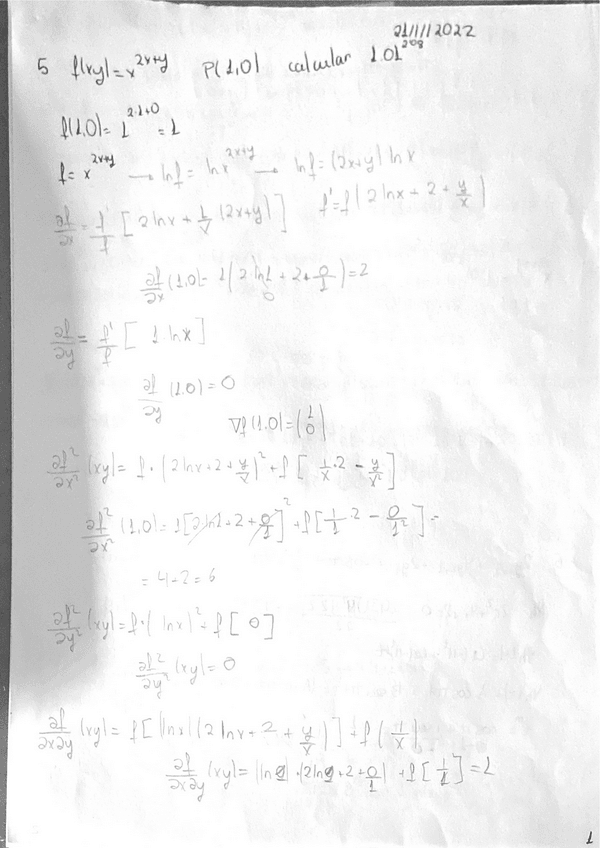 21/11/2022
5 f(xy)=x^{2x+y} P(1,0) calcular 1.01^{2'08}
f(1,0)=1^{2·1+0}=1
f=x^{2x+y} → ln f = ln x^{2x+y} → ln f=(2x+y) ln x
∂f/∂x = f'/f [2 ln x + 1/x (2x+y)] f'=f(2 ln x + 2 + y/x)
∂f/∂x (1,0)= 1(2 ln 1 + 2 + 0/1)=2
0
∂f/∂y = f'/f [1·ln x]
∂f/∂y (1,0)=0
∇f(1,0)=(1 0)
∂f²/∂x² (xy)= f·(2 ln x+2+y/x)²+f[1/x·2 - y/x²]
∂f²/∂x² (1,0)=1[2 ln 1+2+0/1]²+f[1/1·2 - 0/1²]=
=4+2=6
∂f²/∂y² (xy)=f·(ln x)²+f[0]
∂f²/∂y² (xy)=0
∂f/∂x∂y (xy)= f[(ln x)(2 ln x+2+y/x)]+f(1/x)
∂f/∂x∂y (xy)=(ln 1)·(2 ln 1+2+0/1)+f[1/1]=1
1